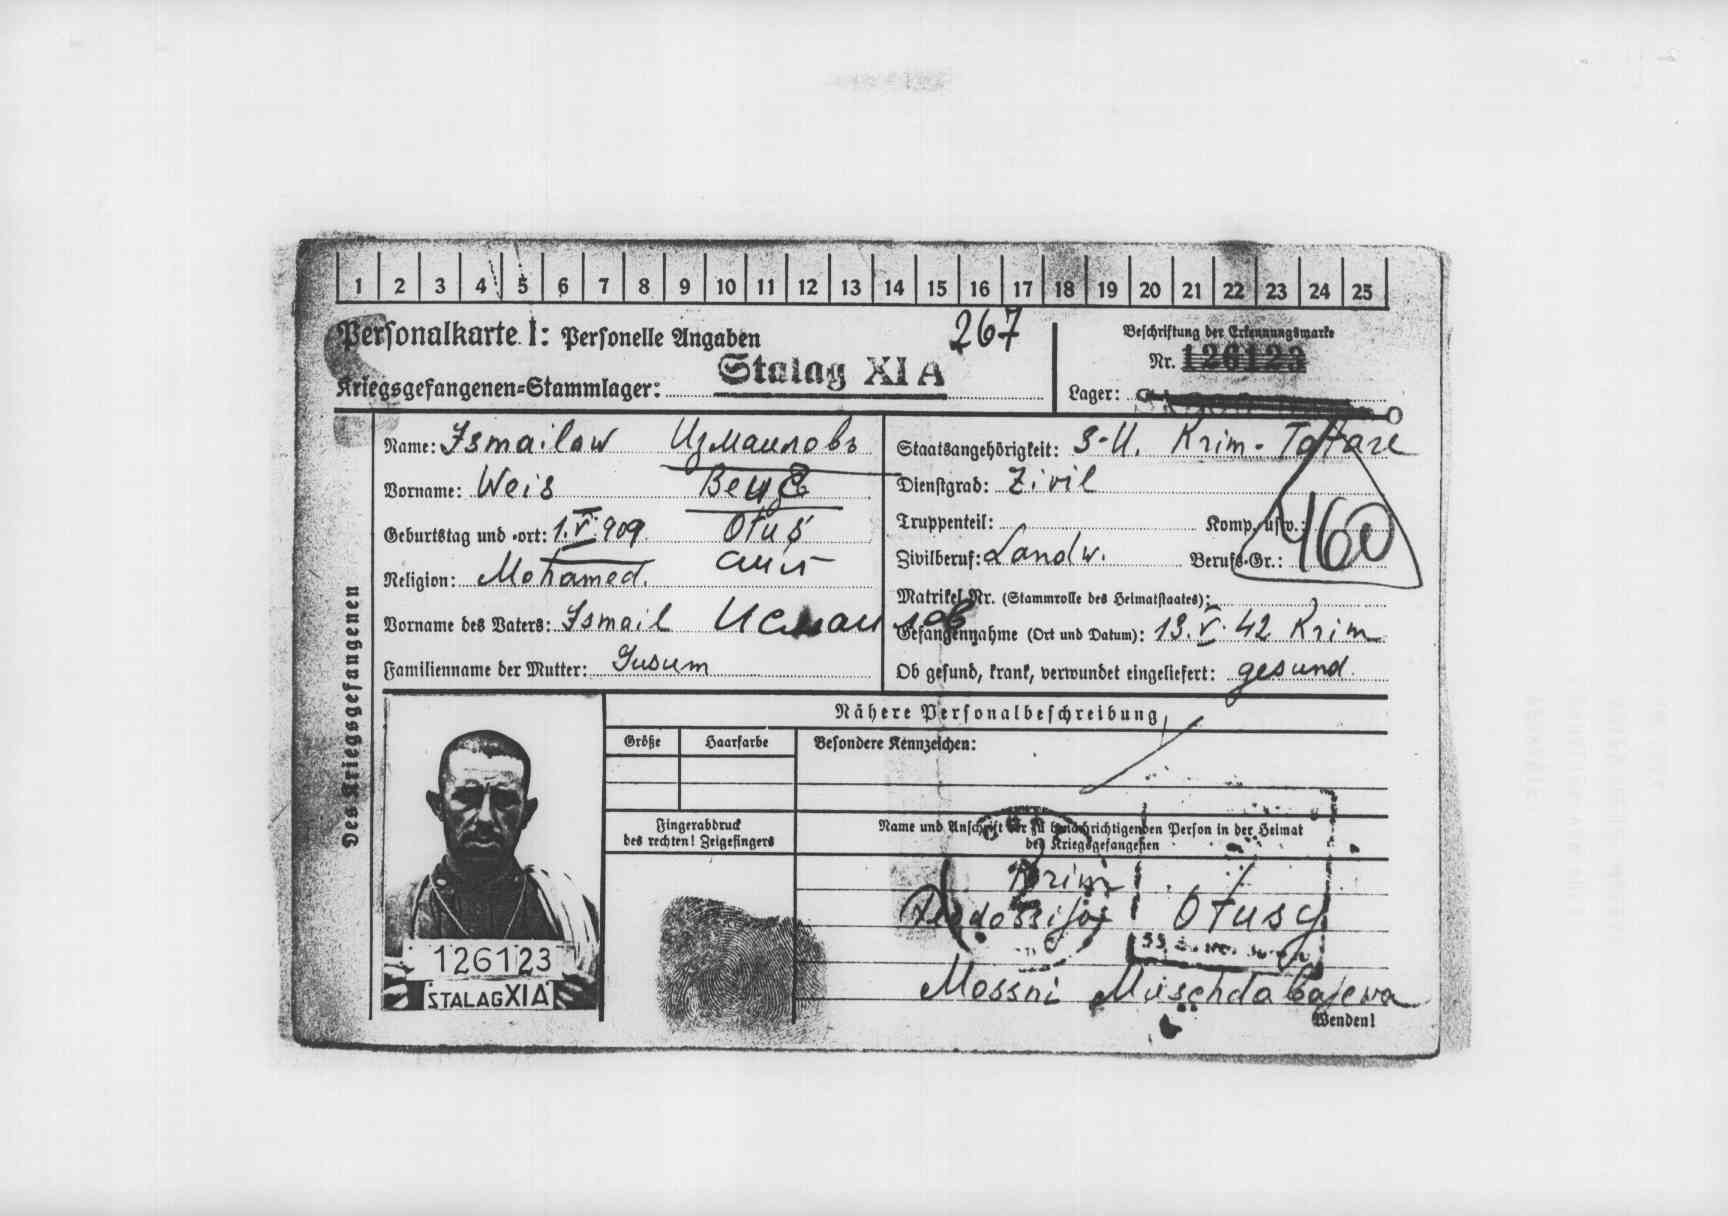 1 2 3 4 5 6 7 8 9 10 11 12 13 14 15 16 17 18 19 20 21 22 23 24 25
267
Personalkarte I: Personelle Angaben
Kriegsgefangenen-Stammlager: Stalag XI A
Beschriftung der Erkennungsmarke
Nr. 126123
Lager:
Des Kriegsgefangenen
Name: Ismailow Измаиловъ
Vorname: Weis Веис
Geburtstag und -ort: 1.V.909. Otus
Religion: Mohamed.
Vorname des Vaters: Ismail
Familienname der Mutter: Jusum
Staatsangehörigkeit: S-U. Krim-Tatare
Dienstgrad: Zivil
Truppenteil: Komp. usw.:
460
Zivilberuf: Landw. Berufs-Gr.:
Matrikel Nr. (Stammrolle des Heimatstaates):
Gefangennahme (Ort und Datum): 13.V.42 Krim
Ob gesund, krank, verwundet eingeliefert: gesund.
126123
STALAG XIA
Nähere Personalbeschreibung
Größe Haarfarbe Besondere Kennzeichen:
Fingerabdruck
des rechten! Zeigefingers
Name und Anschrift der zu benachrichtigenden Person in der Heimat
des Kriegsgefangenen
Krim
Otusy
Mossni Muschdabajewa
Wenden!